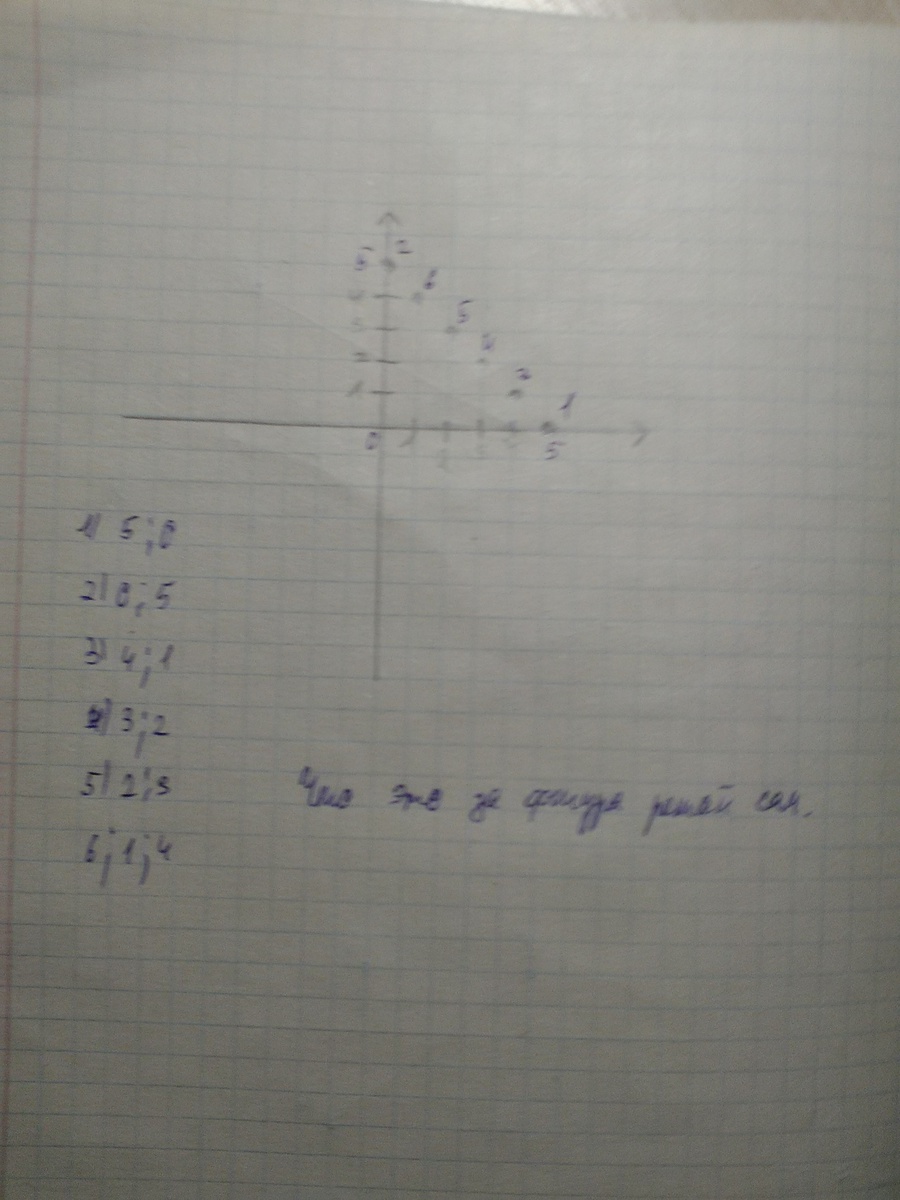 5 2
4 6
3 5
2 4
1 3
1
0 1 5
1) 5;0
2) 0;5
3) 4;1
4) 3;2
5) 2;3
6; 1;4
Что это за фигура решай сам.